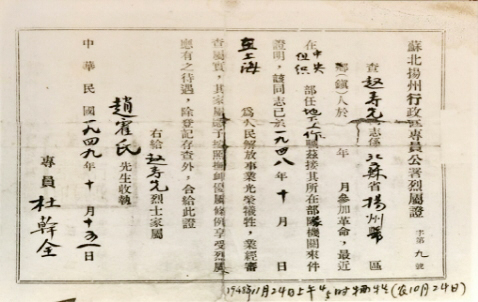 蘇北揚州行政區專員公署烈屬證
字第九號
查趙壽先志係江蘇省揚州縣 區
鄉(鎮)人於 年 月參加革命,最近
在中央組織部任地下工作職茲接其所在部隊機關來件
證明,該同志已於一九四八年十月 日
在上海 為人民解放事業光榮犧牲,業經審
查屬實,其家屬應予 優屬條例享受烈屬
應有之待遇,除登記存查外,合給此證
右給趙壽先烈士家屬
趙霍氏先生收執
中華民國一九四九年十月十五日
專員 杜幹全
1948年11月24日上午 時犧牲(农10月24日)